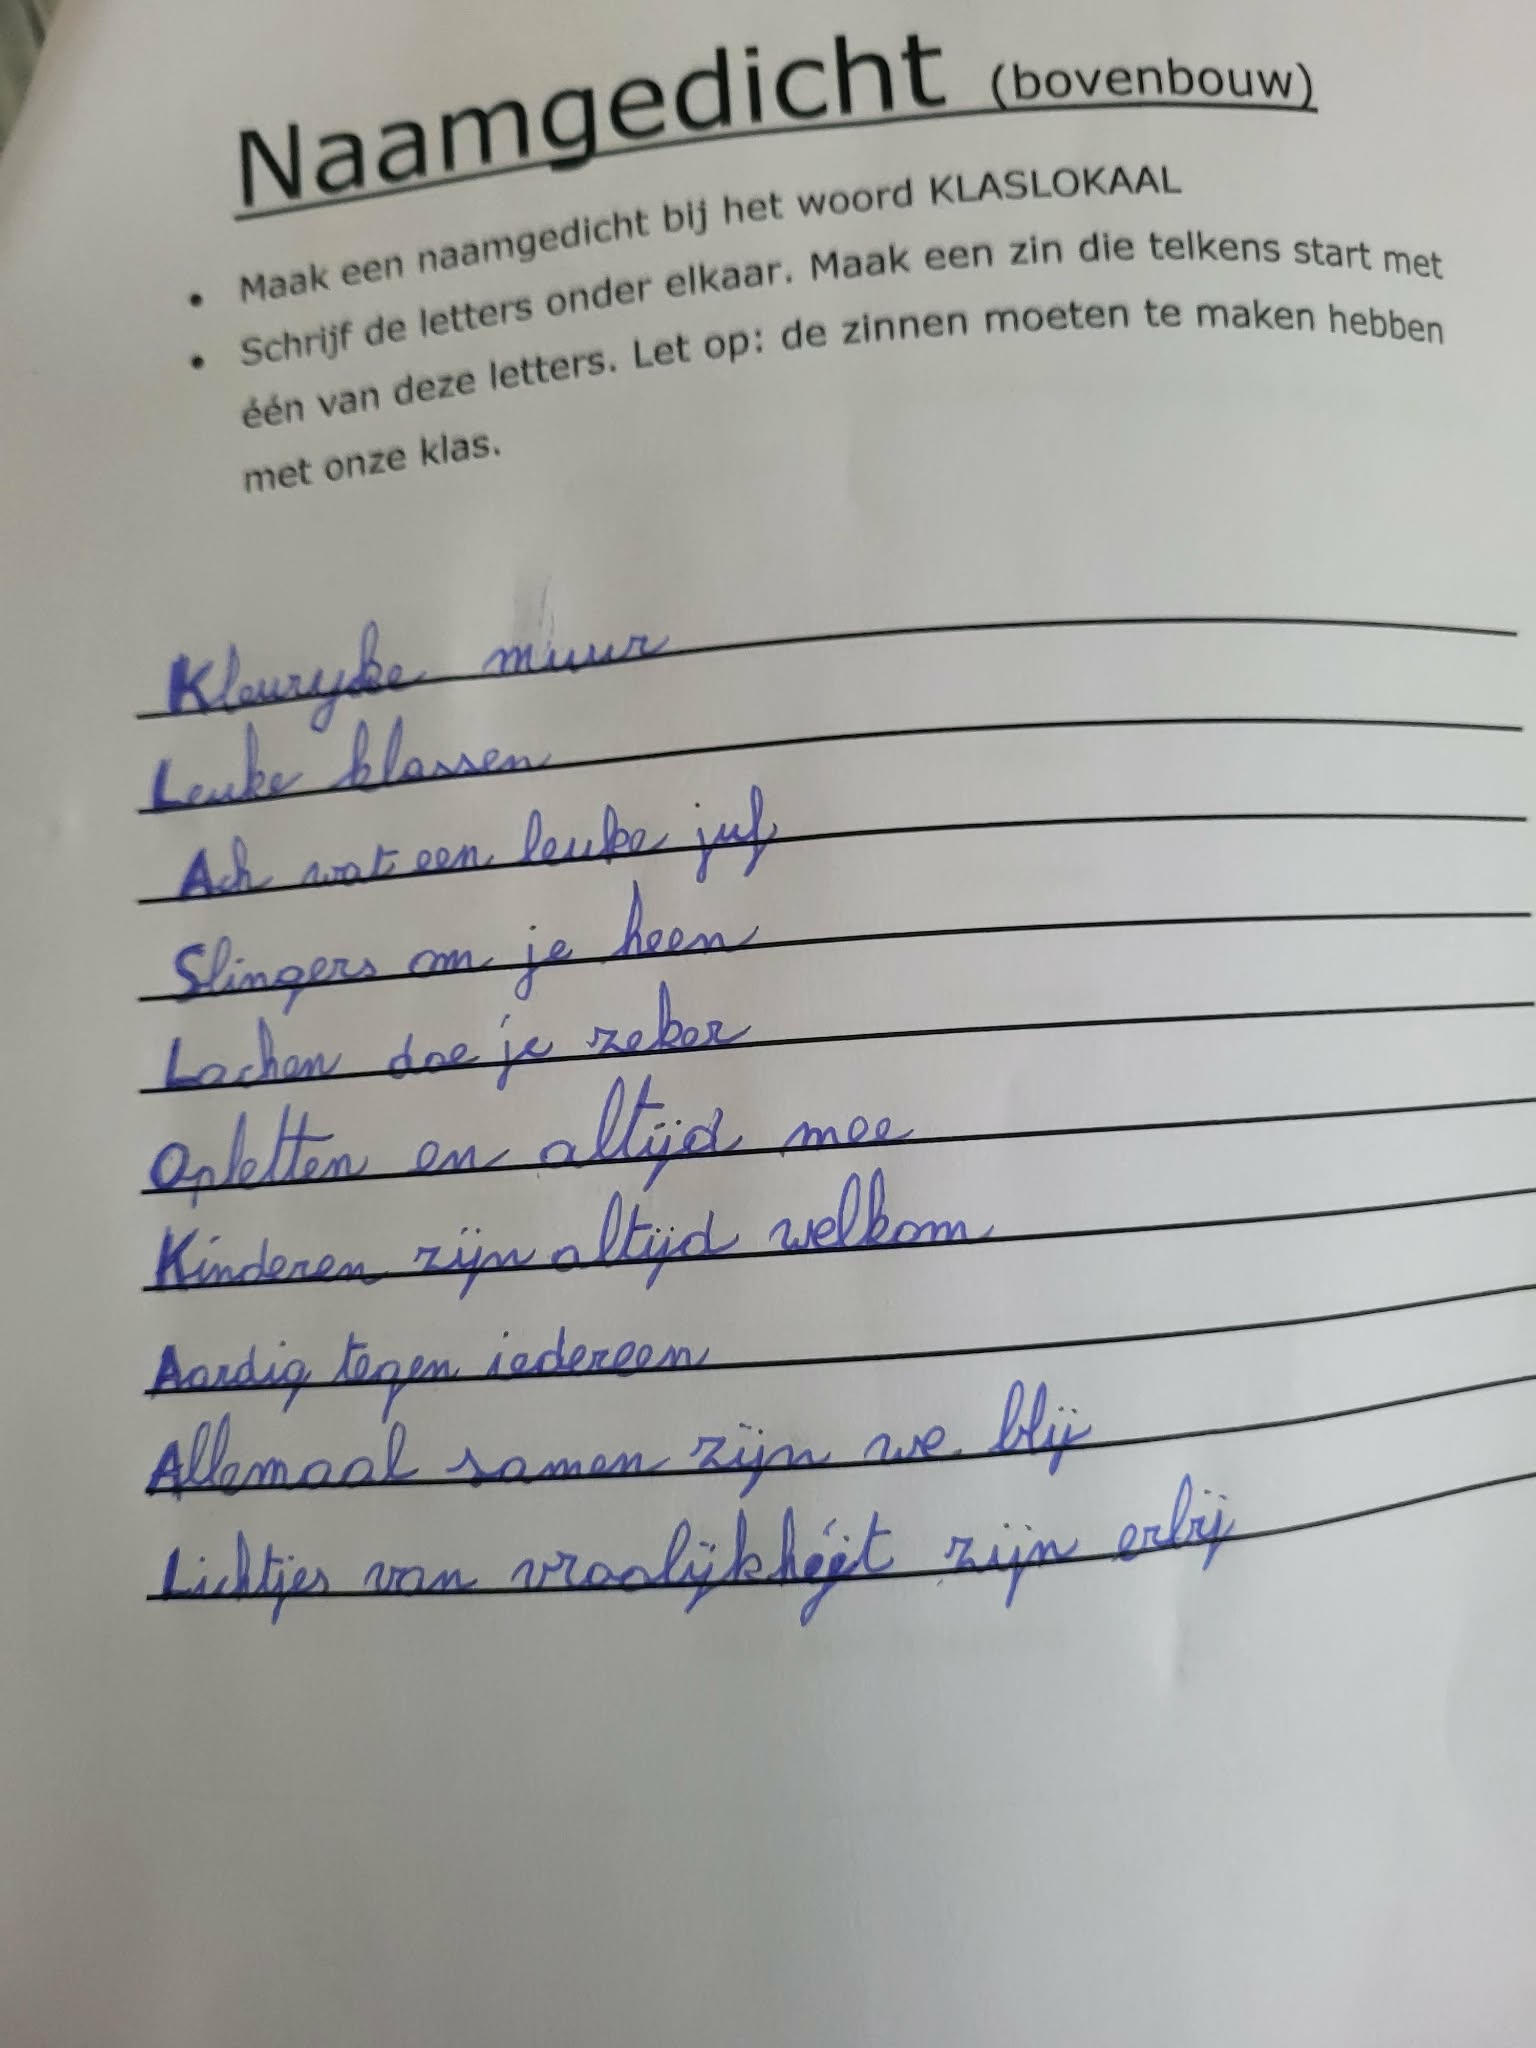 Naamgedicht (bovenbouw)
• Maak een naamgedicht bij het woord KLASLOKAAL
• Schrijf de letters onder elkaar. Maak een zin die telkens start met
één van deze letters. Let op: de zinnen moeten te maken hebben
met onze klas.
Kleuryke muur
Leuke klassen
Ach wat een leuke juf
Slingers om je heen
Lachen doe je zeker
Opletten en altijd mee
Kinderen zijn altijd welkom
Aardig tegen iedereen
Allemaal samen zijn we blij
Lichtjes van zijn erbij